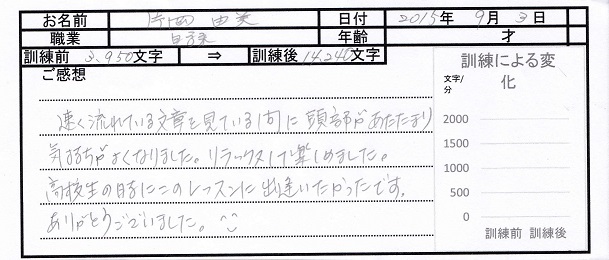 お名前 片岡 由美 日付 2015年 9月 3日
職業 年齢 才
訓練前 2,950文字 ⇒ 訓練後 14,240文字
ご感想
速く流れている文章を見ている内に頭部があたたまり
気もちがよくなりました。リラックスして楽しめました。
高校生の時にこのレッスンに出逢いたかったです。
ありがとうございました。
訓練による変
化
文字/
分
2000
1500
1000
500
0
訓練前 訓練後